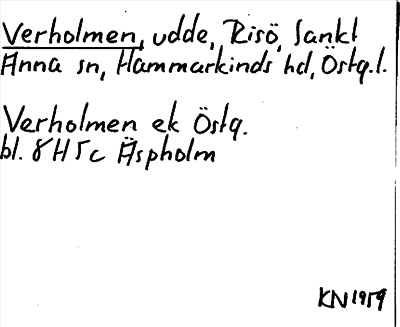 Verholmen, udde, Risö, Sankt
Anna sn, Hammarkinds hd, Östg.l.
Verholmen ek Östg.
bl. 8H5c Äspholm
KN 1959